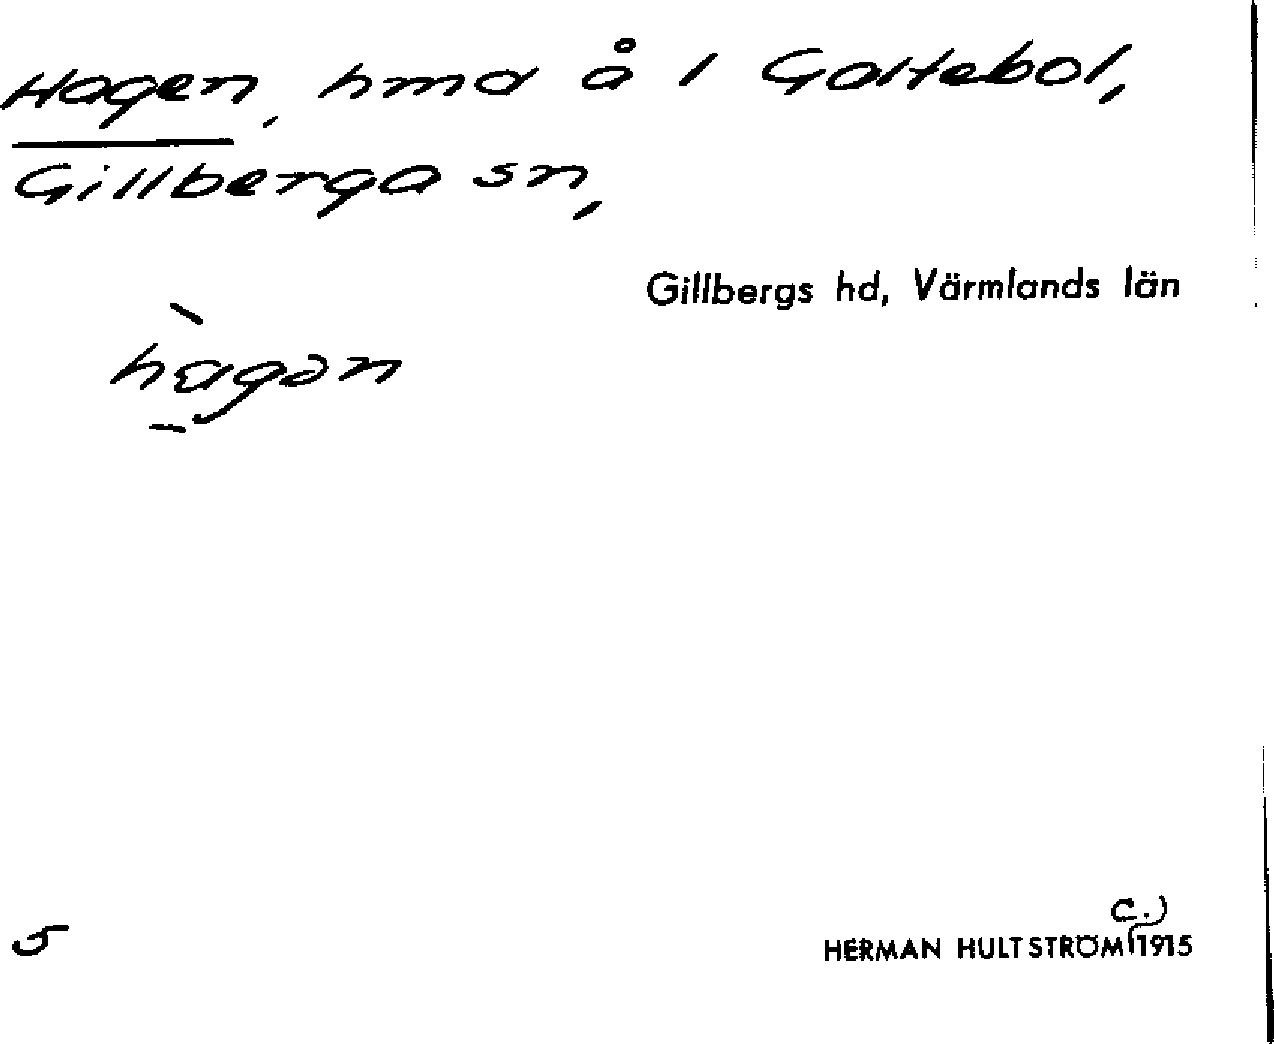 Hagen, hmd å 1 Galtebol,
Gillberga sn,
Gillbergs hd, Värmlands län
hagən
5
c.)
HERMAN HULTSTRÖM 1915